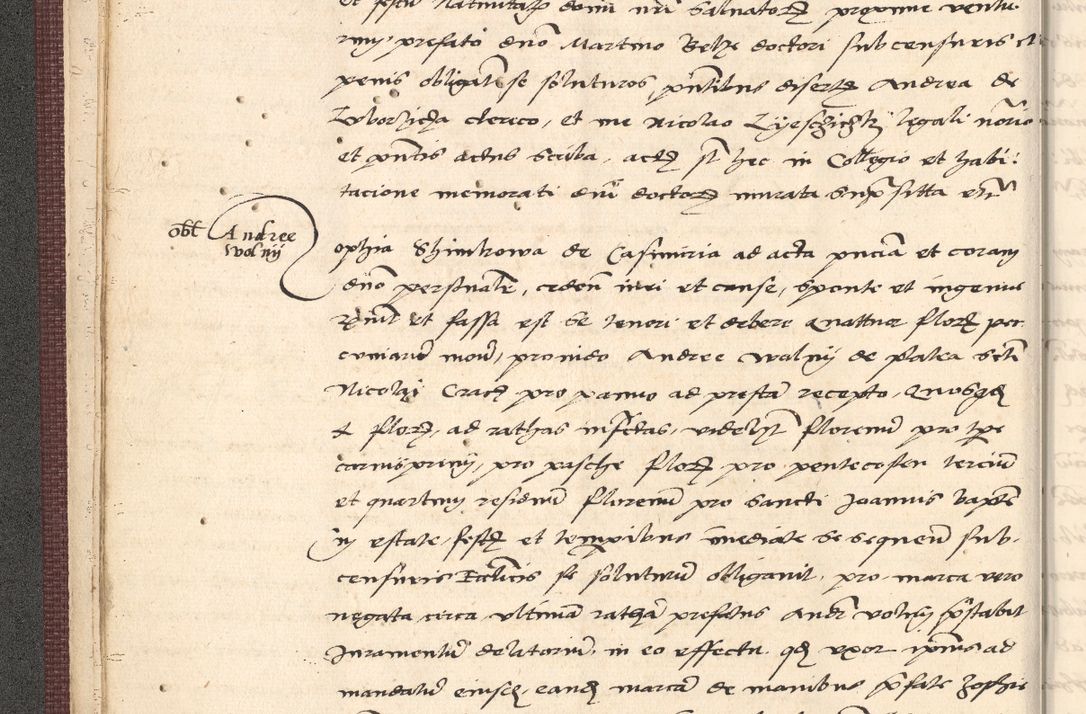 et festum Nativitatis domini nri Salvatoris proxime ventu
rum, prefato dno Martino Belze doctori sub censuris et
penis obligavit se soluturos, pntibus diserto Andrea de
clereco, et me Nicolao legali notrio
et pntis actus scriba, acta st hec in Collegio et habi:
tacione memorati dni doctoris murata
obl Andree
Wolnij
ophia de Casimiria ad acta pncia et coram
dno personalr, cedens iuri et cause, sponte et ingenue
et fassa est se teneri et debere quattuor flor pec
cuniarum provido Andree Wolnij de platea scti
Nicolai Crac pro panno ad prestam recepto, quosqd
4 flor, ad rathas infrctas, videlzt florenum pro tpe
carnisprivij, pro pasche flor pro pentecosten tercium
et quartum residuum florenum pro sancti Joannis bapte
in estate, festis et temporibus imediate se sequen sub
censuris Ecclicis se soluturum obligavit, pro marca vero
negata circa ultimam ratham prefatus Andr volnij pstabit
Juramentum delatorium, in eo effectu qd uxor ipsius ad
mandatum eiusdem, eandem marcam de manibus pfate Zophie